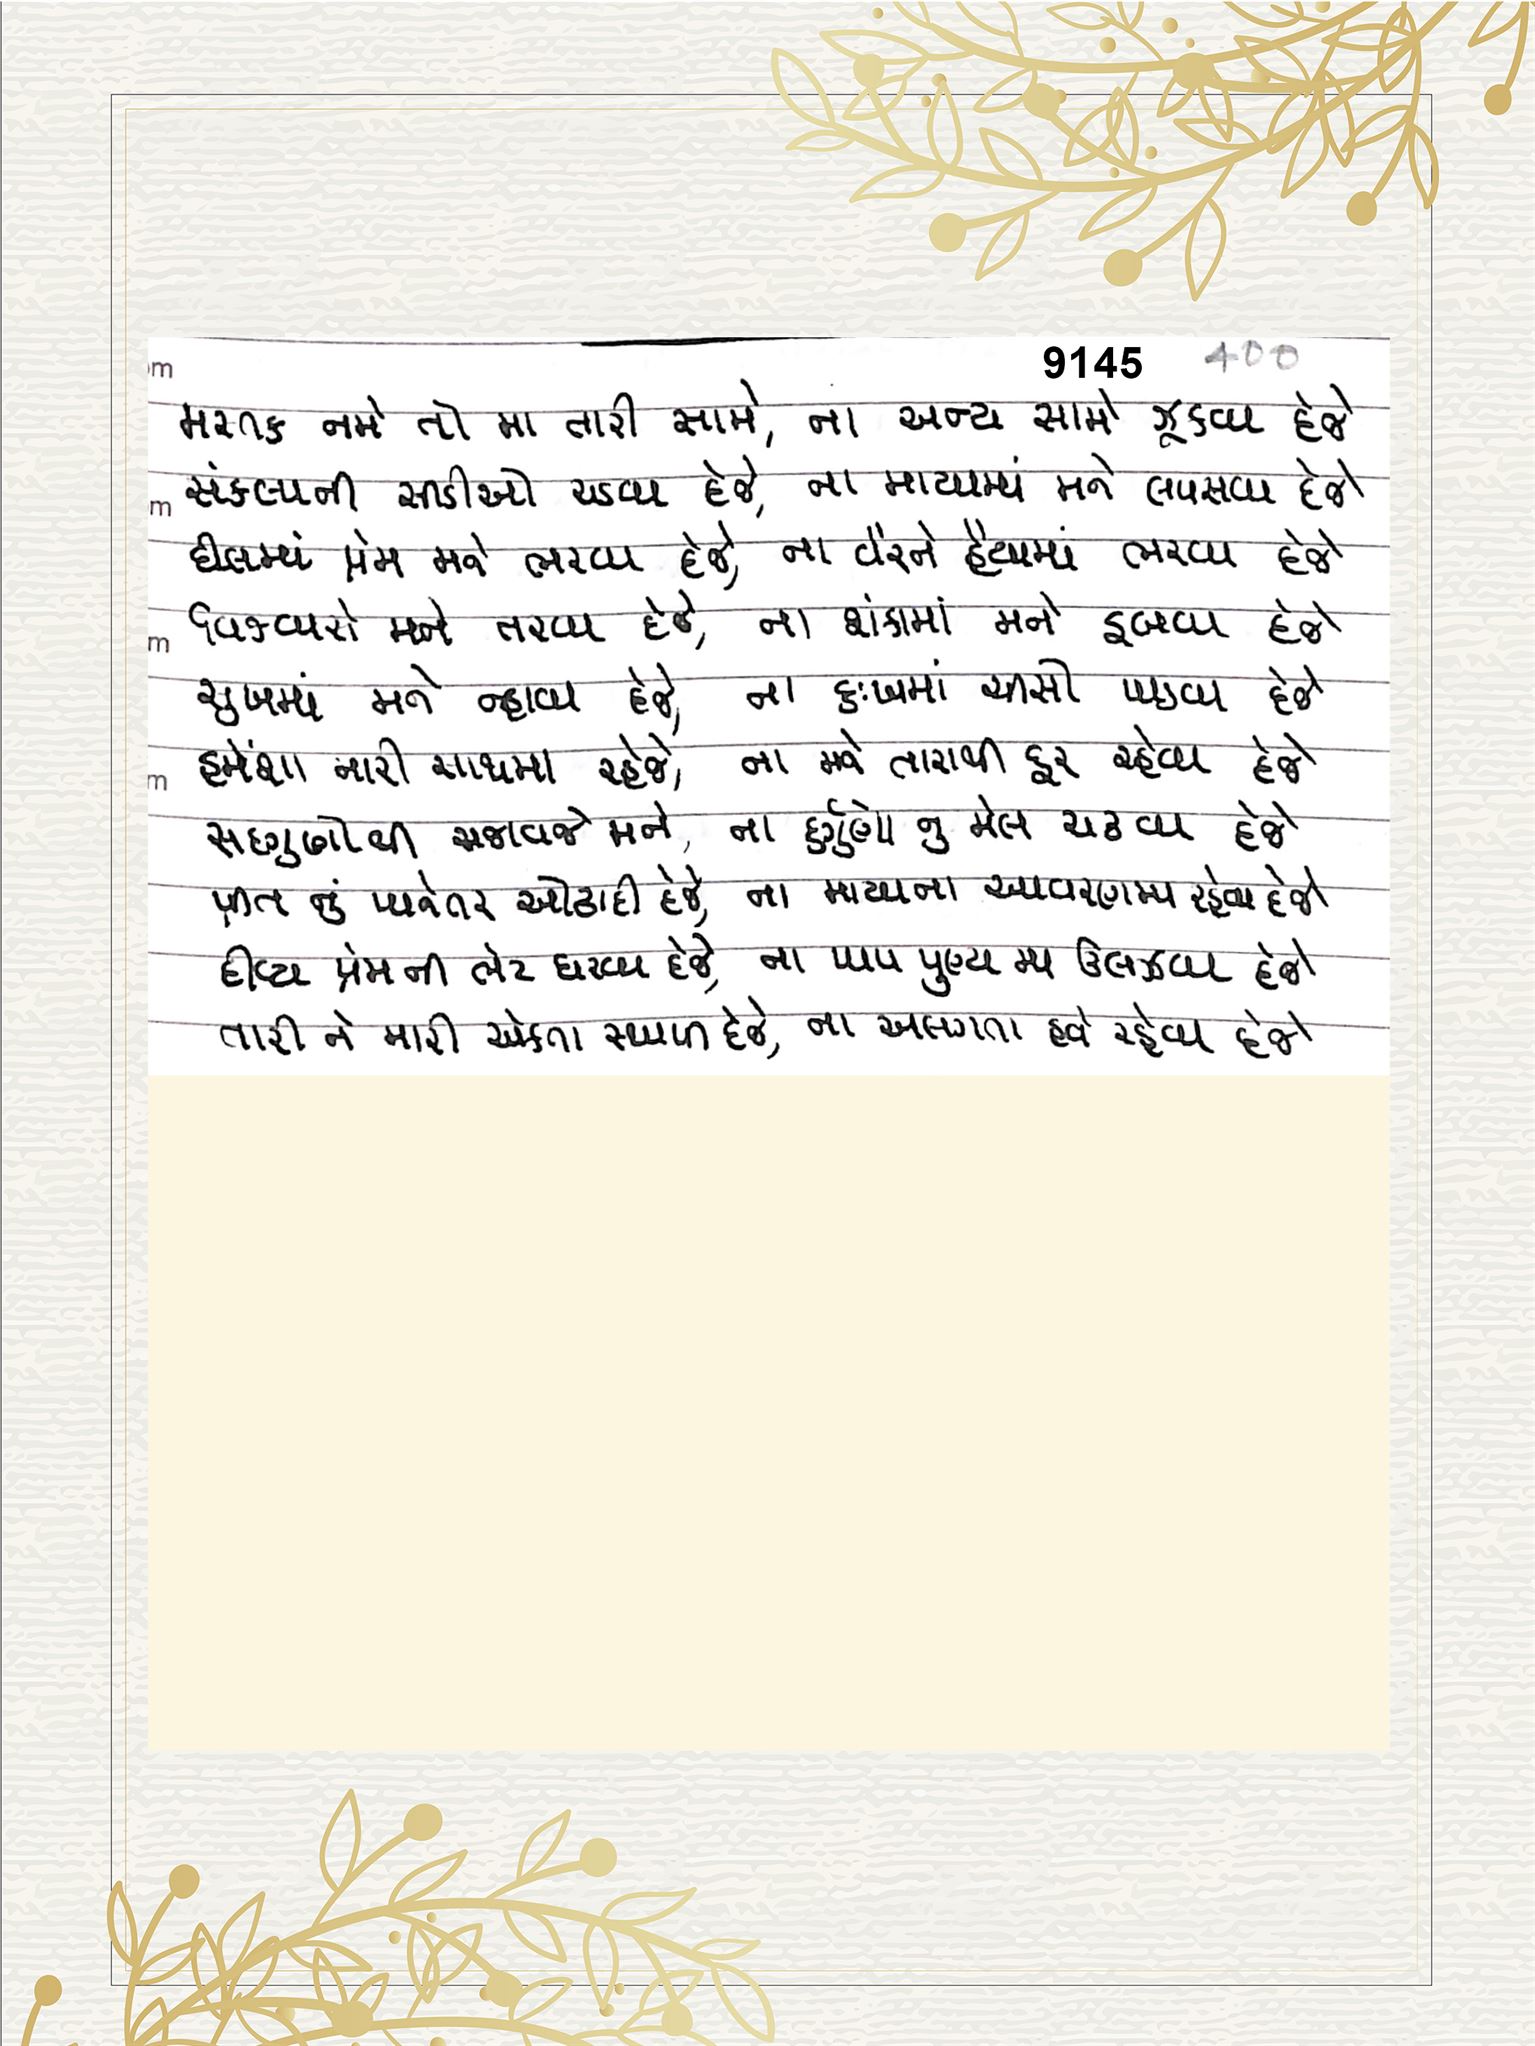 9145 400
મસ્તક નમે તો મા તારી સામે, ના અન્ય સામે ઝૂકવા દેજે
સંકલ્પની સીડીઓ ચડવા દેજે, ના માયામાં મને લપસવા દેજે
દીલમાં પ્રેમ મને ભરવા દેજે, ના વૈરને હૈયામાં ભરવા દેજે
મને તરવા દેજે, ના શંકામાં મને ડૂબવા દેજે
સુખમાં મને ન્હાવા દેજે, ના દુઃખમાં ચીસો પાડવા દેજે
હમેંશા તારી સાથમા રહેજે, ના મને તારાથી દૂર રહેવા દેજે
સદગુણોથી સજાવજે મને, ના દુર્ગુણો નુ મેલ ચઢવા દેજે
પ્રીત નું પાનેતર ઓઢાદી દેજે, ના માયાના આવરણમા રહેવા દેજે
દીવ્ય પ્રેમ ની ભેટ ધરવા દેજે, ના પાપ પુણ્ય મા ઉલઝવા દેજે
તારી ને મારી એકતા સ્થાપી દેજે, ના અલગતા હવે રહેવા દેજે